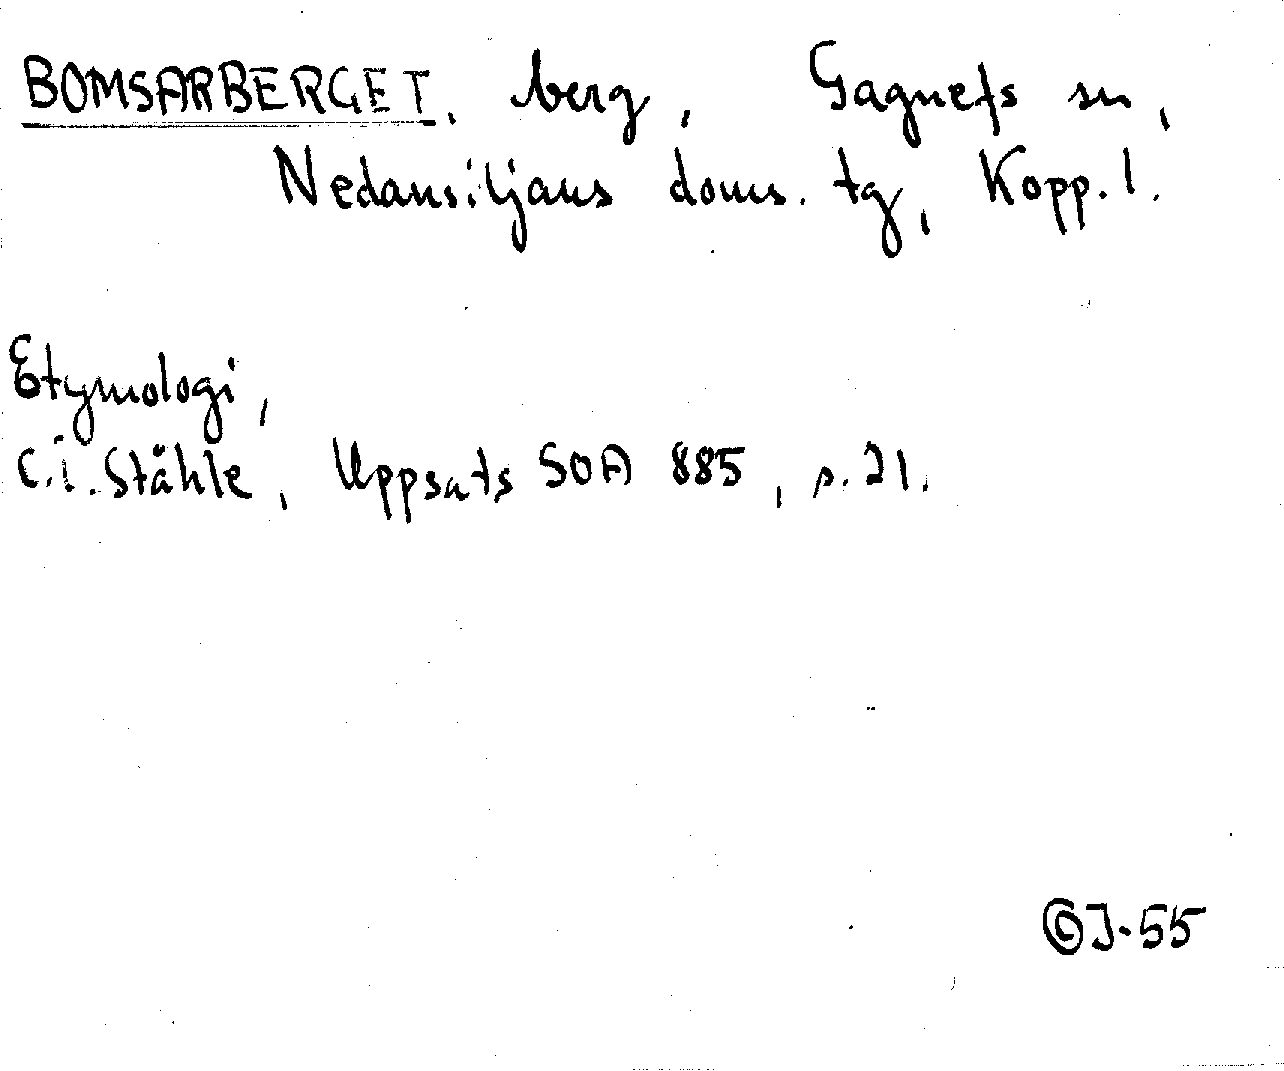 BOMSARBERGET, berg, Gagnefs sn,
Nedansiljans doms. tg, Kopp. l.
Etymologi,
C.I. Ståhle, Uppsats SOA 885, s. 21.
©J-55